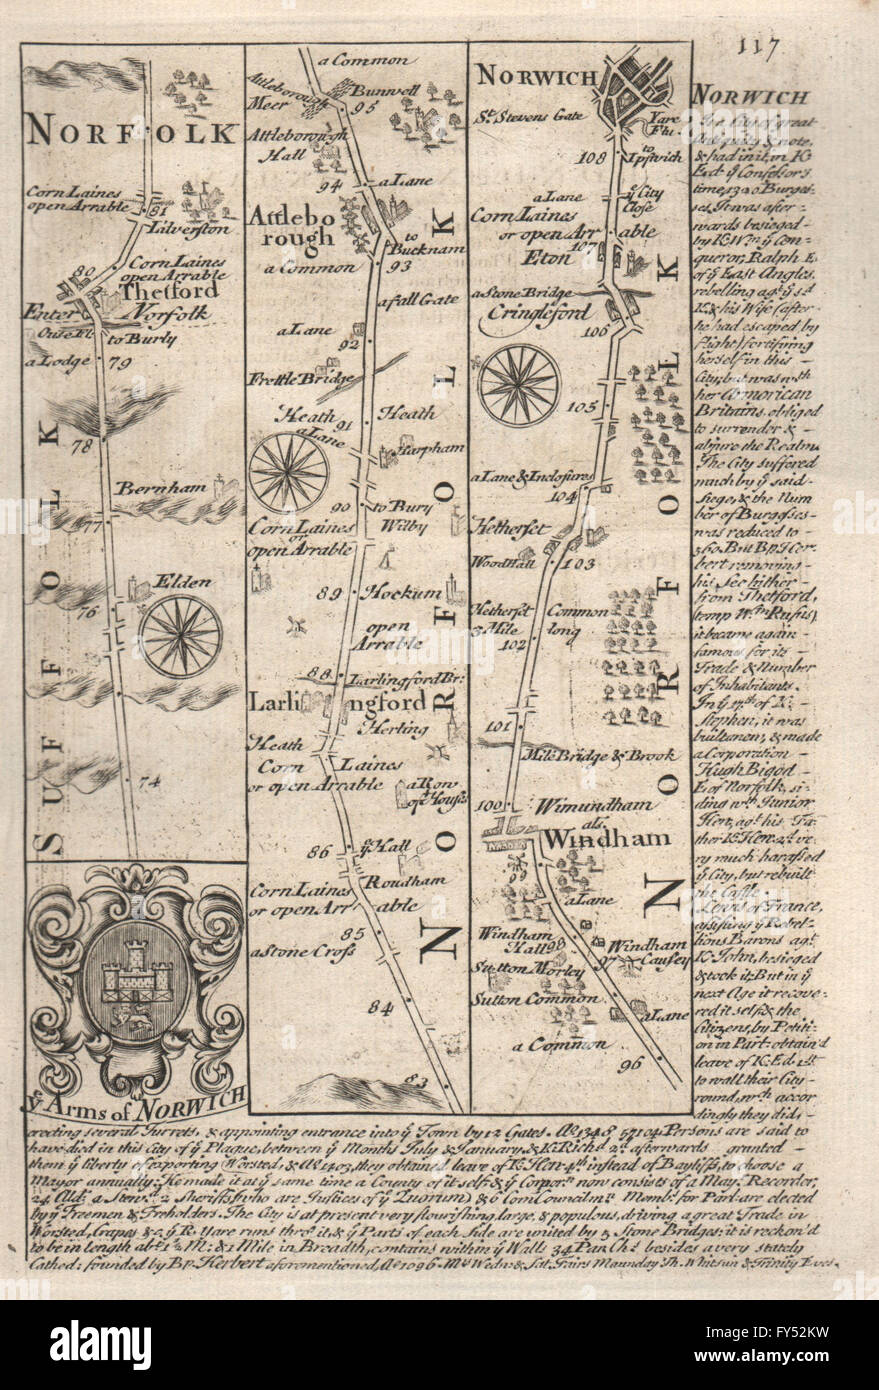 117
NORFOLK
Corn Laines
open Arrable
81
Lilverston
Corn Laines
open Arrable
80
Thetford
Enter
Norfolk
Ouse Fl
to Burly
a Lodge
79
78
Bernham
77
Elden
76
74
SUFFOLK
ye Arms of NORWICH
a Common
Attleborough
Meer
Bunwell
95
Attleborough
Hall
94
a Lane
Attlebo
rough
to
Bucknam
a Common
93
a fall Gate
a Lane
92
Frettle Bridge
Heath
91
Heath
a Lane
Harpham
90
to Bury
Corn Laines
or
open Arrable
Wilby
89
Hockum
open
Arrable
88
Larlingford Br:
Larlingford
Herling
Heath
Corn Laines
or open Arrable
a Row
of Houses
86
ye Hall
Roudham
Corn Laines
or open Arrable
a Stone Cross
85
84
83
NORFFOLK
NORWICH
St. Stevens Gate
Yare
Flu:
108
to
Ipswich
a Lane
ye City
Close
Corn Laines
or open Arrable
107
Eton
a Stone Bridge
Cringleford
106
105
a Lane & Inclosures
104
Hetherset
Wood Hall
103
Hetherset Common
3 Mile long
102
101
Mile Bridge & Brook
100
Wimundham
als.
Windham
a Lane
Windham
Hall
98
Windham
Causey
97
Sutton Morley
Sutton Common
a Lane
a Common
96
NORFOLK
NORWICH
the City of great
Antiquity & note,
& had in it, in K:
Ed: ye Confessor's
time, 1320 Burges-
ses. It was after-
wards besieged
by K. Wm. ye Con-
queror, Ralph E.
of ye East Angles,
rebelling agt. ye sd.
K. & his Wife (after
he had escaped by
flight) fortifying
herself in this
City, but was wth.
her Armorican
Britains, obliged
to surrender &
abjure the Realm.
The City suffered
much by ye said
Siege, & the Num
ber of Burgesses
was reduced to
560. But Bp. Her-
bert removing
his See hither
from Thetford,
temp Wm. Rufus,
it became again
famous for its
Trade & Number
of Inhabitants.
In ye 17th of K:
Stephen, it was
built anew, & made
a Corporation
Hugh Bigod
E. of Norfolk, si-
ding wth. Junior
Hen: agt. his Fa-
ther K. Hen: 2d. ve-
ry much harassed
ye City, but rebuilt
the Castle.
Lewis of France,
assisting ye Rebel-
lious Barons agt.
K. John, besieged
& took it: But in ye
next Age it recove-
red it self: & the
Citizens, by Petiti-
on in Part: obtain'd
leave of K. Ed. 1st
to wall their City
round, wch. accor
dingly they did,
erecting several Turrets, & appointing entrance into ye Town by 12 Gates. Ao. 1348. 57104 Persons are said to
have died in this City of ye Plague, between ye Months July & January, & K. Richd. 2d. afterwards granted
them ye liberty of exporting Worsted, & Ao. 1403, they obtained leave of K. Hen: 4th. instead of Bayliffs, to choose a
Mayor annually. He made it at ye same time a County of it self: & ye Corporn. now consists of a May: Recorder,
24 Ald: a Stewd. 2 Sheriffs (who are Justices of ye Quorum) & 6 Com Councilmn. Memb: for Part: are elected
by ye Freemen & Freeholders. The City is at present very flourishing, large, & populous, driving a great Trade in
Worsted, Crapes &c. ye R. Yare runs thro' it, & ye Parts of each Side are united by 5 Stone Bridges: it is reckon'd
to be in length abt. 1½ M: & 1 Mile in Breadth, contains within ye Walls 34 Par. Ch: besides a very stately
Cathed: founded by Bp. Herbert aforementioned, Ao. 1096. Mts. Wedn: & Sat. Fairs Maunday Th. Whitsun & Trinity Eves.
alamy
a
alamy stock photo
FY52KW
www.alamy.com